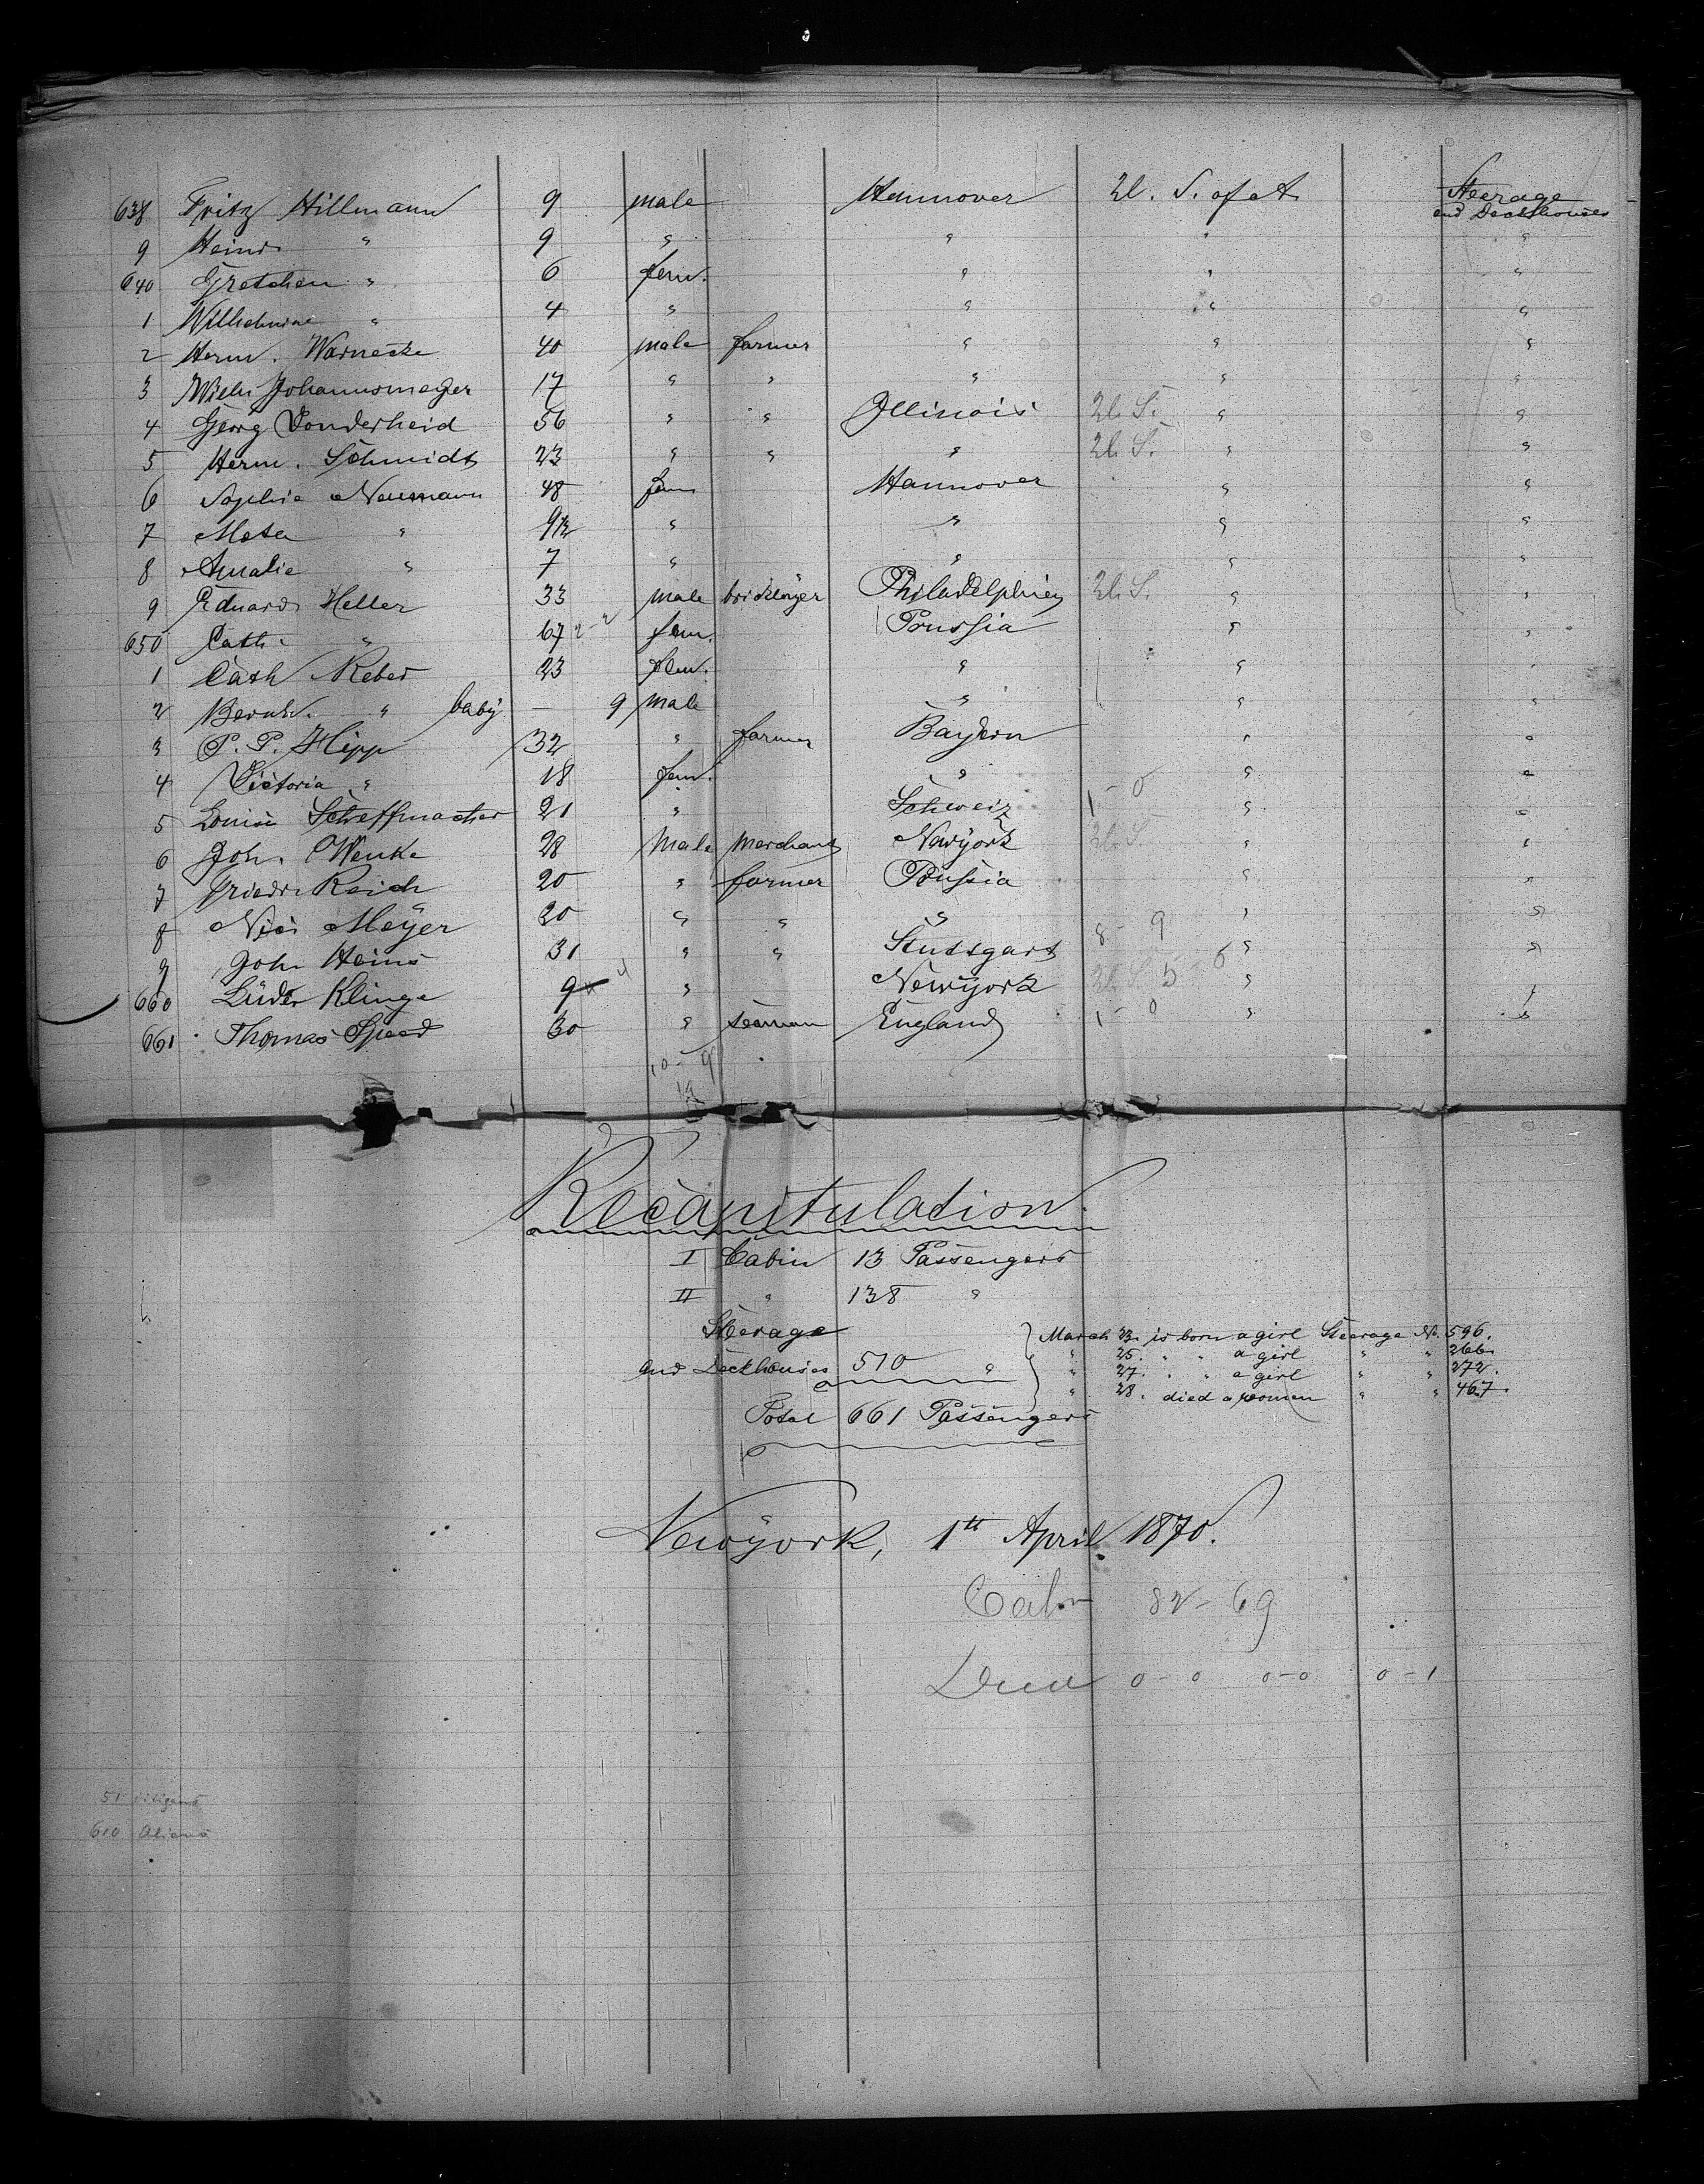 638 Fritz Hillmann 9 male Hannover U. S. of A. Steerage and Deckhouses
9 Heinr. " 9 " " " "
640 Gretchen " 6 fem. " " "
1 Wilhelmine " 4 " " " "
2 Herm. Warnecke 40 male farmer " " "
3 Wilh. Johannsmeyer 17 " " " " "
4 Georg Vonderheid 56 " " Illinois U. S. " "
5 Herm. Schmidt 23 " " " U. S. " "
6 Sophie Neumann 48 fem Hannover " "
7 Meta " 9 1/2 " " " "
8 Amalie " 7 " " " "
9 Eduard Heller 33 male bricklayer Philadelphia U. S. " "
650 Cath. " 67 fem. Prussia " "
1 Cath Reber 23 fem. " " "
2 Bernh. " baby — 9 male " " "
3 P. P. Hipp 32 " farmer Bayern " "
4 Victoria " 18 fem. " " "
5 Louise Scheffmacher 21 " Schweiz 1 - 0 " "
6 Joh. Wenke 28 Male merchant Newyork U. S. " "
7 Friedr. Reich 20 " farmer Prussia " "
8 Nic. Meyer 20 " " " " "
9 Joh. Heins 31 " " Stuttgart 8 - 9 " "
660 Lüder Klinge 9 4 " Newyork U. S. 5 - 6 " "
661 Thomas Speed 30 " seaman England 1 - 0 " "
10 - 9
19
Recapitulation.
I Cabin 13 Passengers
II " 138 "
Steerage
and Deckhouses 510 "
March 23. is born a girl Steerage No. 596.
" 25. " " a girl " " 266.
" 27. " " a girl " " 272.
" 28. died a woman " " 467.
Total 661 Passengers
Newyork, 1th April 1870.
Cabn 82 - 69
Died 0 - 0 0 - 0 0 - 1
51 citizens
610 Aliens